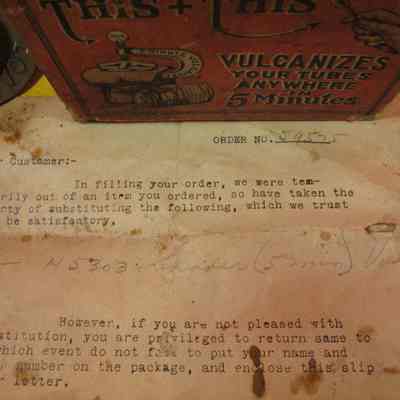 THIS + THIS
VULCANIZES
YOUR TUBES
ANYWHERE
IN
5 Minutes
ORDER NO. 5955
r Customer:-
In filling your order, we were tem-
rily out of an item you ordered, so have taken the
rty of substituting the following, which we trust
be satisfactory.
N5303
However, if you are not pleased with
stitution, you are privileged to return same to
which event do not fail to put your name and
number on the package, and enclose this slip
r letter.